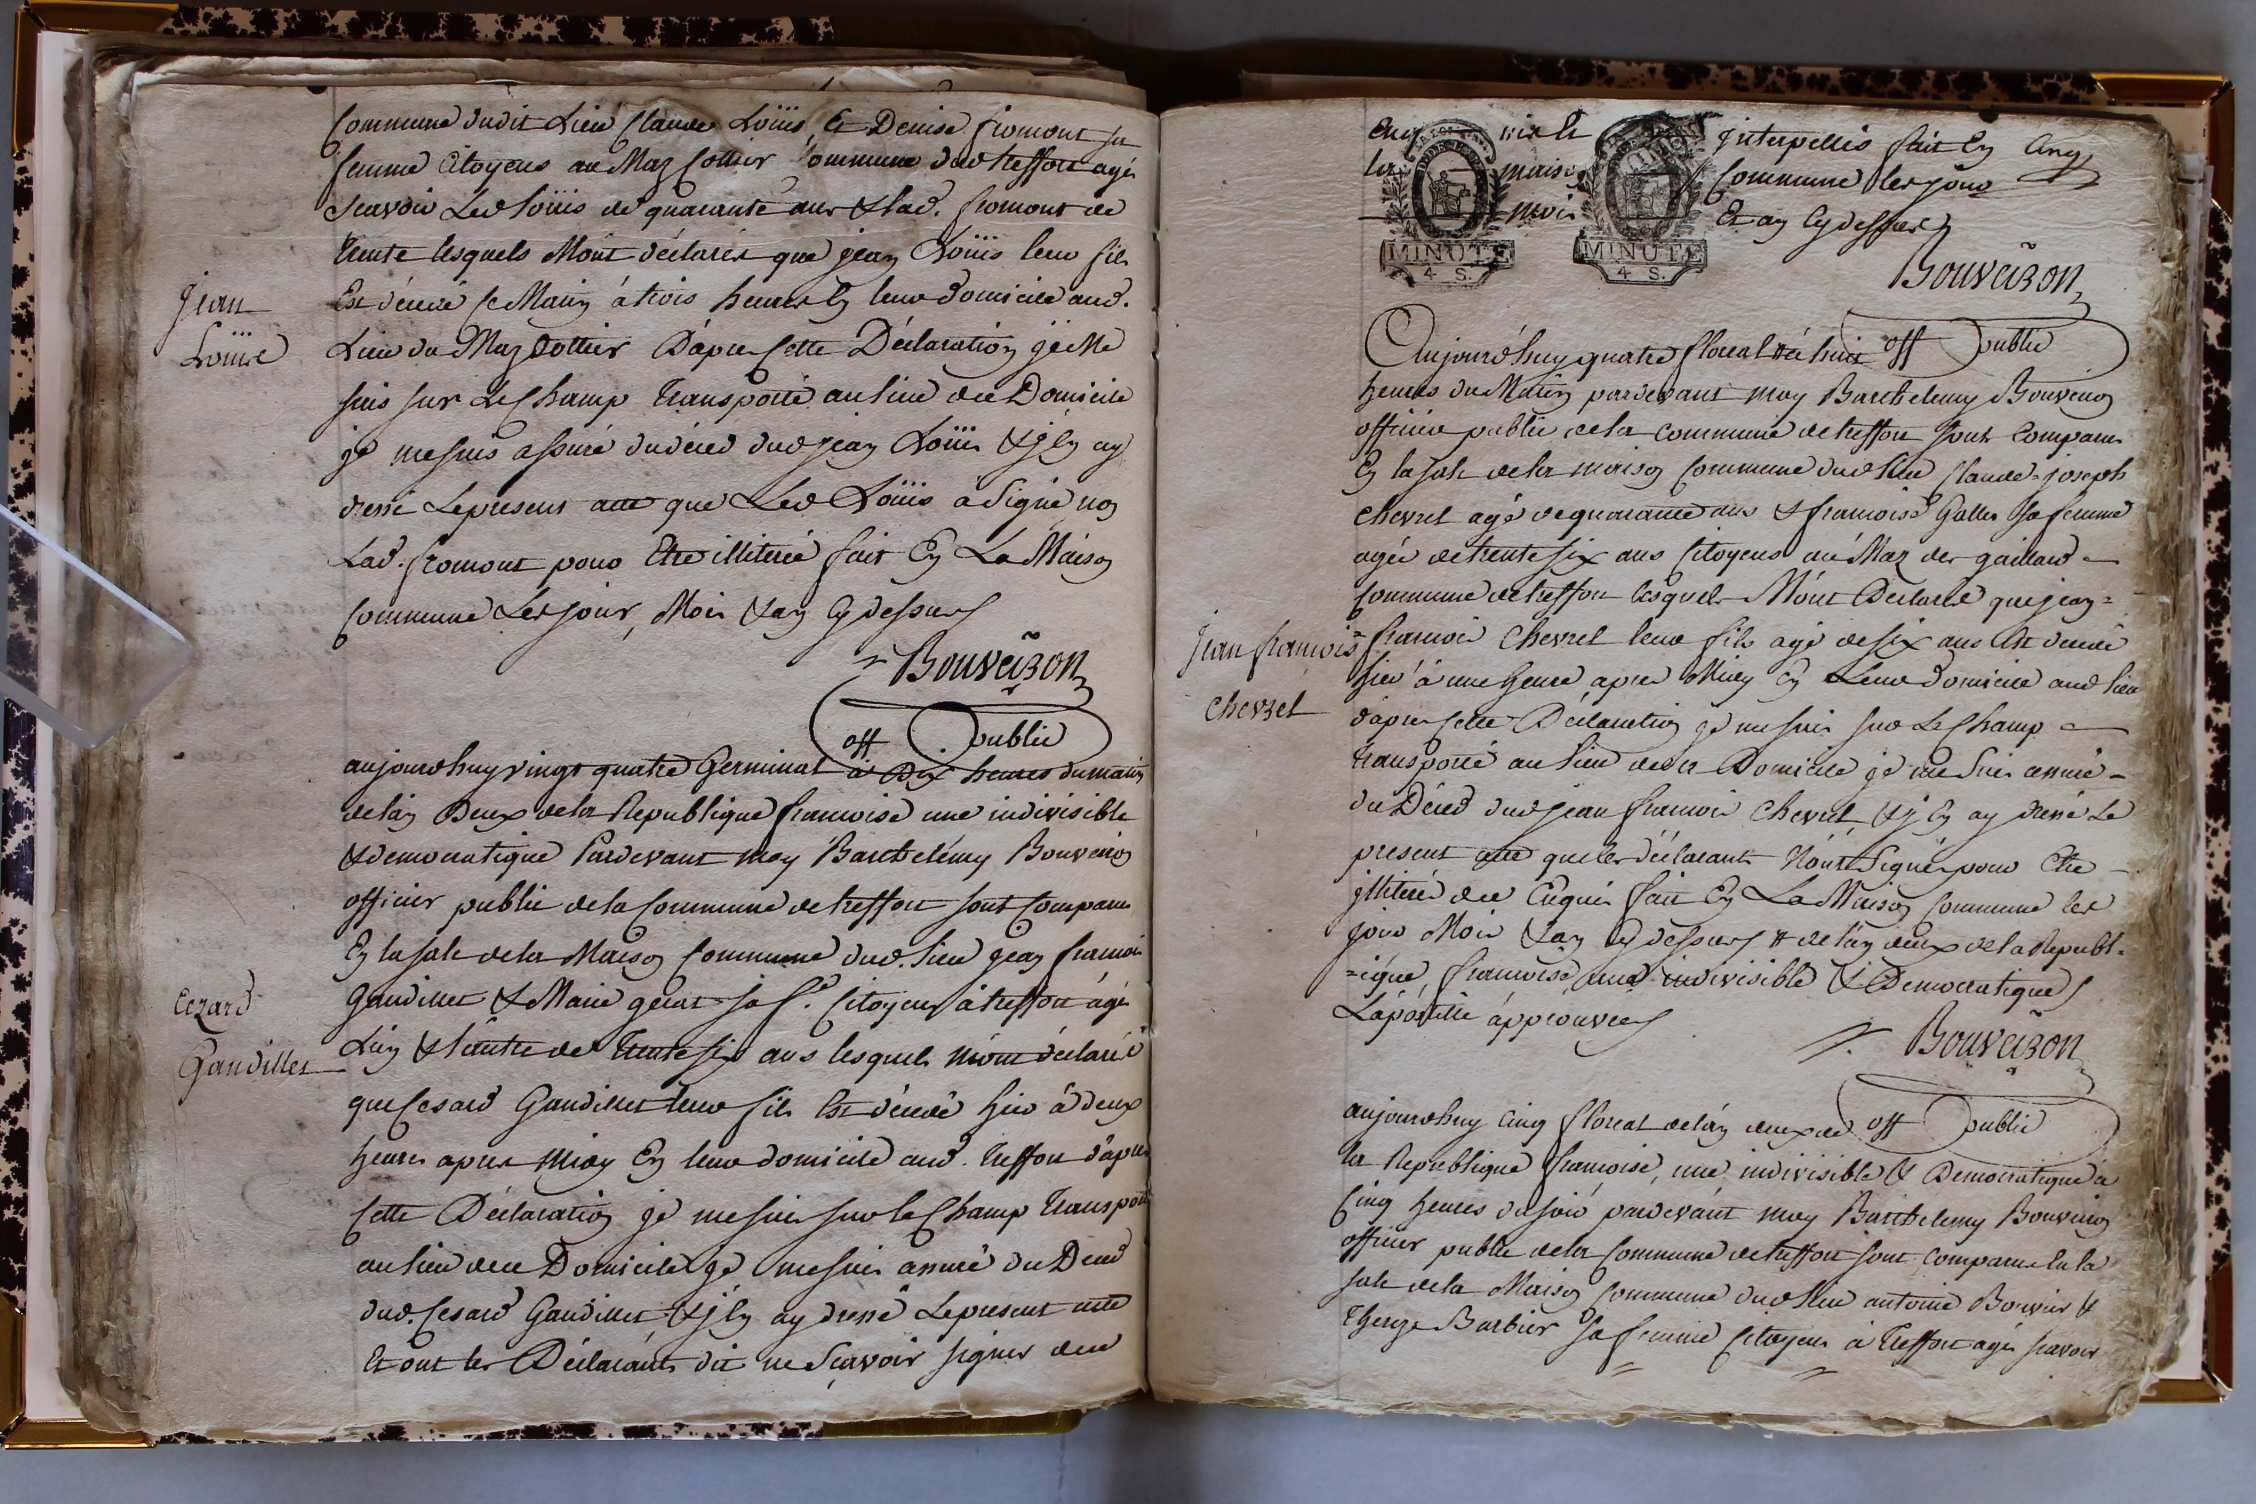 Commune dudit Lieu Claude Loüis Et Denise fromont sa
femme Citoyens au Maz Cottier Commune dud treffort agés
Scavoir Led Loüis de quarante ans & lad. fromont de
trente lesquels M'ont déclarés que jean Loüis leur fils
Est décédé Ce Matin à trois heures En leur domicile aud.
Jean
Loüis
Lieu du Maz Cottier D'apres Cette Déclaration je Me
suis sur Le Champ transporté au lieu dud Domicile
je me suis assuré du décéd dud jean Loüis & j'En ay
dressé Le present acte que Led Loüis a Signé non
Lad. fromont pour Etre illiterée fait En La Maison
Commune Les jour, Mois & an Cy dessus
Bouveiron
off public
aujourdhuy vingt quatre Germinal à Dix heures du matin
de l'an Deux de la Republique francoise une indivisible
& democratique Pardevant moy Barthelémy Bouveiron
officier public de la Commune de treffort sont Comparus
En la sale de la Maison Commune dud. lieu jean francois
Cezard
Gaudillet
Gaudillet & Marie gérat sa f.e Citoyens à treffort agés
L'un & l'autre de trente six ans lesquels m'ont déclaré
que Cesard Gaudillet leur fils Est décédé hier à deux
heures apres Midy En leur domicile aud. treffort d'apres
Cette Déclaration je me suis sur le Champ transporté
au lieu dud Domicile je me suis assuré du Décéd
dud. Cesard Gaudillet & j'En ay dressé Le present acte
Et ont les Déclarants dit ne Scavoir signer de ce
Enquis Et interpellés fait En
la maison Commune les jour
mois Et an Cy dessus
Bouveiron
off public
MINUTE
4 S.
MINUTE
4 S.
Aujourdhuy quatre floreal à huit
heures du Matin pardevant moy Barthelemy Bouveiron
officier public de la commune de treffort sont Comparus
En la sale de la maison Commune dud lieu Claude-joseph
Chevret agé de quarante ans & francoise Gallet sa femme
agée de trente six ans Citoyens au Maz des gaillard
Commune de treffort lesquels M'ont Déclaré que jean=
Jean francois
Chevret
francois Chevret leur fils agé de six ans Est décédé
hier à une heure apres Midy En Leur domicile aud lieu
d'apres Cette Déclaration je me suis sur Le Champ
transporté au lieu dud Domicile je me suis assuré
du Décéd dud jean francois Chevret & j'En ay dressé Le
present acte que les déclarants N'ont Signé pour Etre
illiteré de ce Enquis fait En La Maison Commune les
jour Mois & an Cy dessus # de l'an deux de la Republ-
=ique, francoise, une indivisible & Democratique
L'apostille approuvée
Bouveiron
off public
aujourdhuy Cinq floreal de l'an deux de
la Republique francoise, une, indivisible & Democratique à
Cinq heures du soir pardevant moy Barthelemy Bouveiron
officier public de la Commune de treffort sont comparus En la
sale de la Maison Commune dud lieu antoine Bouvier &
Barbier sa femme Citoyens à treffort agés scavoir